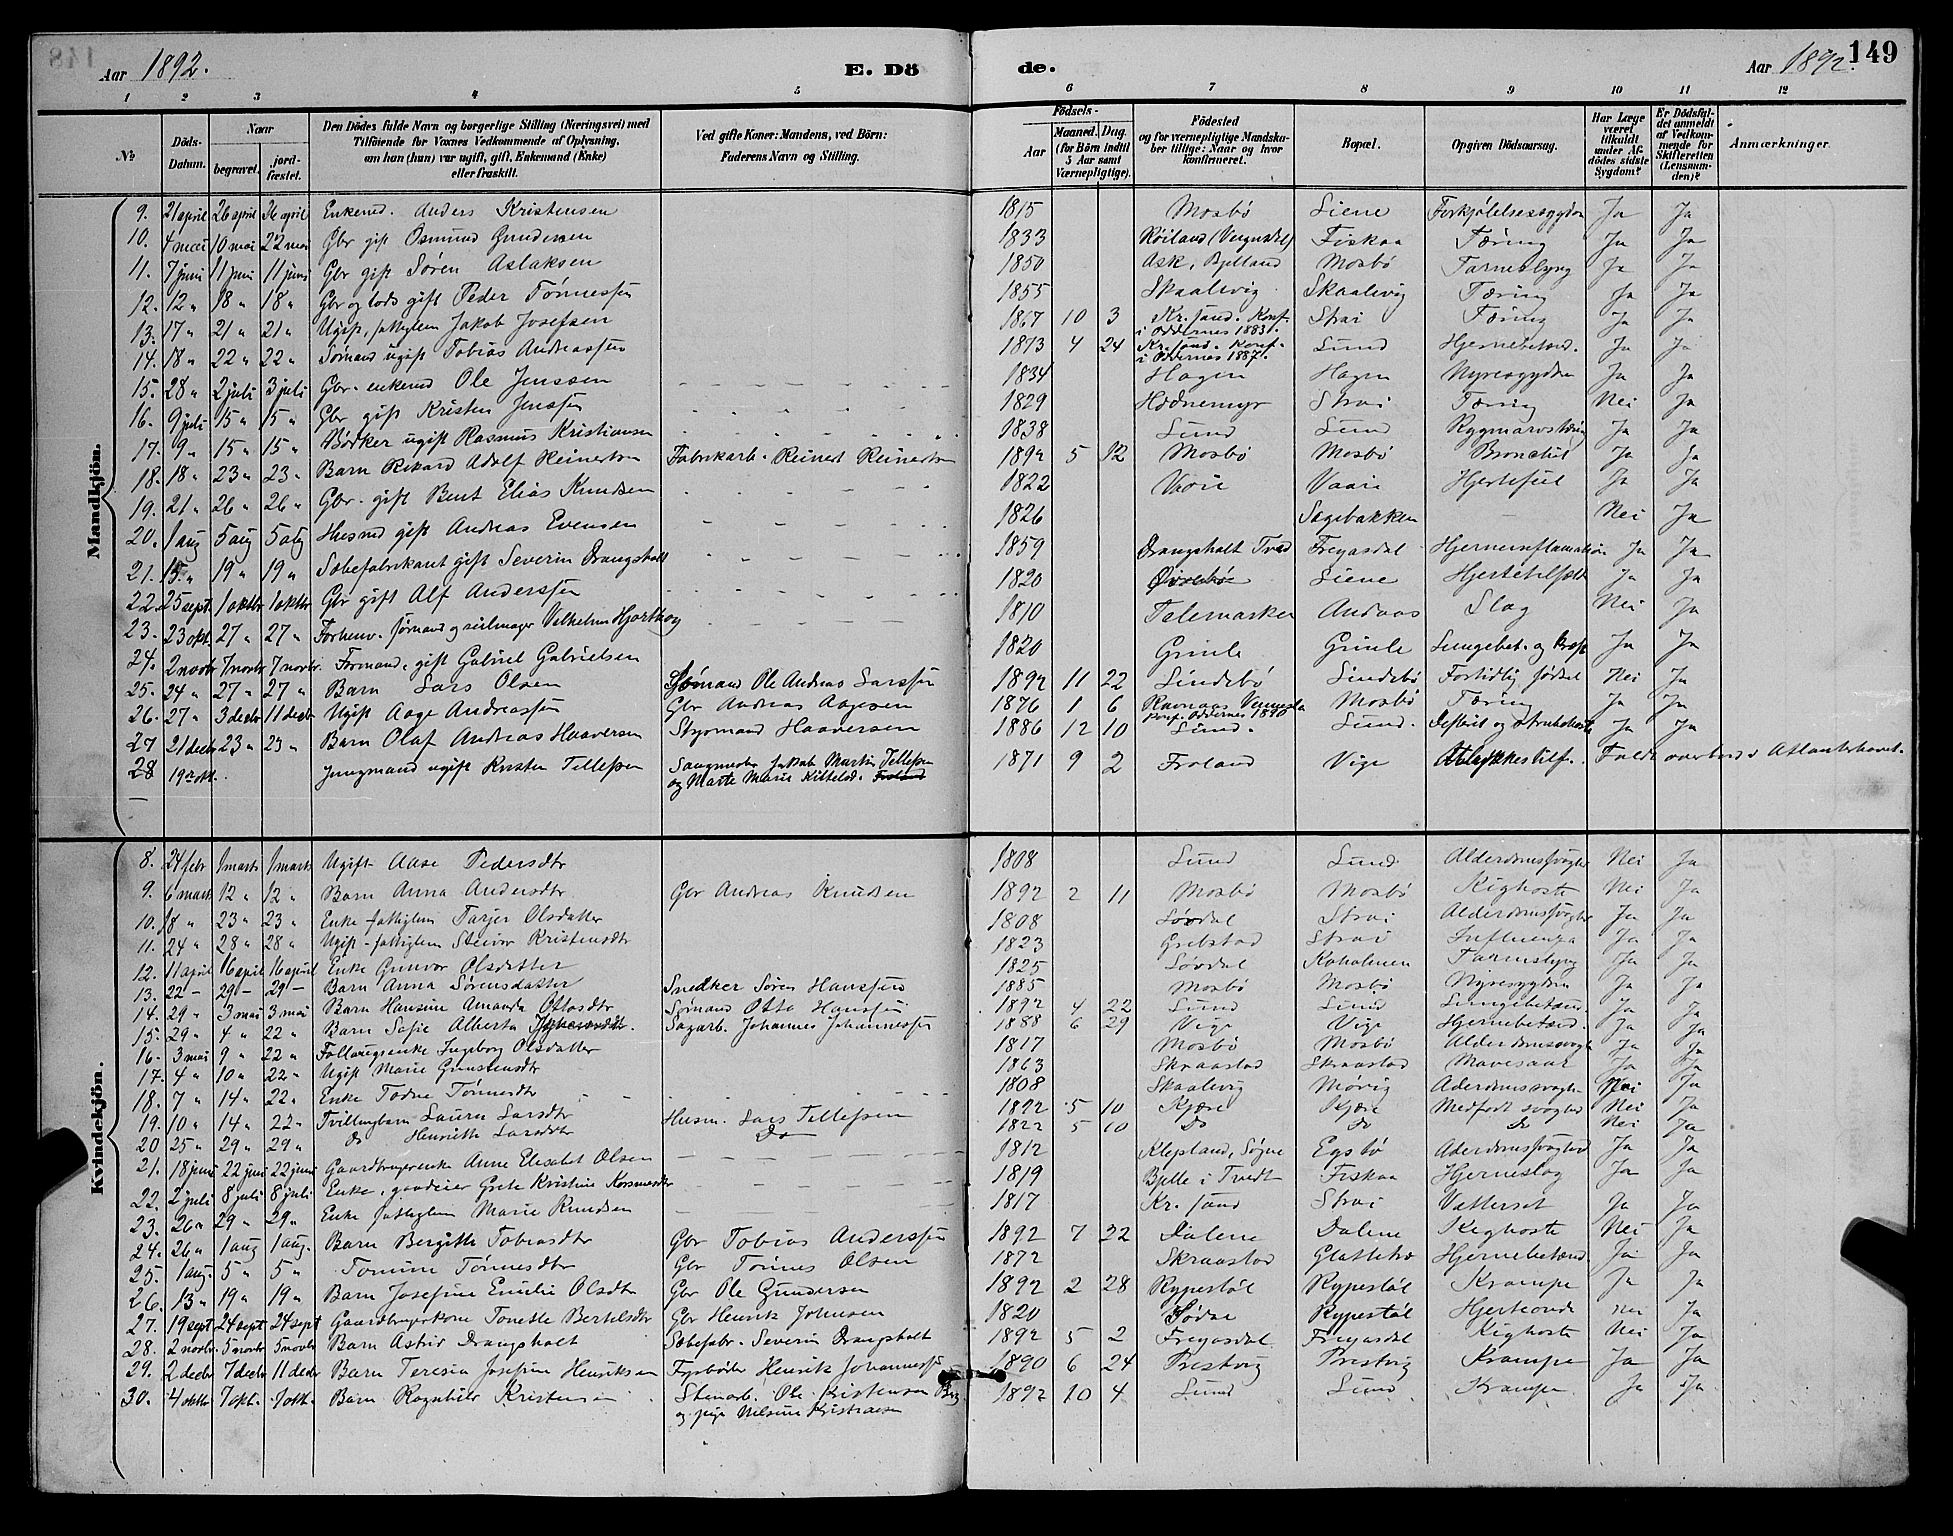 Aar 1892. E. Dö de. Aar 1892. 149
1 2 3 4 5 6 7 8 9 10 11 12
No. Döds-Datum. Naar begravet. jordfæstet. Den Dödes fulde Navn og borgerlige Stilling (Næringsvei) med Tilföiende for Voxnes Vedkommende af Oplysning, om han (hun) var ugift, gift, Enkemand (Enke) eller fraskilt. Ved gifte Koner: Mandens, ved Börn: Faderens Navn og Stilling. Födsels- Aar Maaned. Dag. (for Börn indtil 5 Aar samt Værnepligtige). Födested og for værnepligtige Mandskaber tillige: Naar og hvor konfirmeret. Bopæl. Opgiven Dödsaarsag. Har Læge været tilkaldt under Afdödes sidste Sygdom? Er Dödsfaldet anmeldt af Vedkommende for Skifteretten (Lensmanden)? Anmærkninger.
Mandkjön.
9. 21 april 26 april 26 april Enkemd. Anders Kristensen 1815 Mosbö Liene Forkjølelsessygdom Ja Ja
10. 4 mai 10 mai 22 mai Gbr gift Osmund Gundersen 1833 Röiland (Vegusdal) Fiskaa Tæring Ja Ja
11. 7 juni 11 juni 11 juni Gbr gift Sören Aslaksen 1850 Ask, Bjelland Mosbö Tarmeslyng Ja Ja
12. 12 " 18 " 18 " Gbr og lods gift Peder Tönnessen 1855 Skaalevig Skaalevig Tæring Ja Ja
13. 17 " 21 " 21 " Ugift, fattiglem Jakob Josefsen 1867 10 3 Kr.sand. Konf. i Oddernes 1883. Strai Tæring Ja Ja
14. 18 " 22 " 22 " Sömand ugift Tobias Andreassen 1873 4 24 Kr.sand. Konf. i Oddernes 1887. Lund Hjernebetænd. Ja Ja
15. 28 " 2 juli 3 juli Gbr. enkemd Ole Jenssen 1834 Hagen Hagen Nyresygdom Ja Ja
16. 9 juli 15 " 15 " Gbr gift Kristen Jenssen 1829 Hodnemyr Strai Tæring Nei Ja
17. 9 " 15 " 15 " Bödker ugift Rasmus Kristiansen 1838 Lund Lund Rygmarvstæring Ja Ja
18. 18 " 23 " 23 " Barn Rikard Adolf Reinertsen Fabrikarb. Reinert Reinertsen 1892 5 12 Mosbö Mosbö Bronchit Ja Ja
19. 21 " 26 " 26 " Gbr. gift Bent Elias Knudsen 1822 Vaarie Vaarie Hjertefeil Ja Ja
20. 1 aug 5 aug 5 aug Husmd gift Andreas Evensen 1826 Sagebakken - Nei Ja
21. 15 " 19 " 19 " Sæbefabrikant gift Severin Drangsholt 1859 Drangsholt Tved Fregasdal Hjerneinflamation Ja Ja
22. 25 sept. 1 oktbr 1 oktbr Gbr gift Alf Anderssen 1820 Øvrebö Liene Hjertetilfælde Ja Ja
23. 23 okt. 27 " 27 " Forhenv. sömand og seilmager Vilhelm Hjorthog 1810 Telemarken Andaas Slag Nei Ja
24. 2 novbr 7 novbr. 7 novbr. Formand, gift Gabriel Gabrielsen 1820 Grimle Grimle Lungebet. og Ja Ja
25. 24 " 27 " 27 " Barn Lars Olsen Sömand Ole Andreas Larssen 1892 11 22 Lindebö Lindebö Fortidlig födsel Nei Ja
26. 27 " 3 decbr 11 decbr Ugift Aage Andreassen Gbr Andreas Aagesen 1876 1 6 Ravnaas Vennesla konf. Oddernes 1890 Mosbö Tæring Ja Ja
27 21 decbr 23 " 23 " Barn Olaf Andreas Haaversen Styrmand Haaversen 1886 12 10 Lund. Lund. Difterit og strubehoste Ja Ja
28 19 okt. Jungmand ugift Kristen Tellefsen Sangmester Jakob Martin Tellefsen og Marte Marie Kittelsd. Froland 1871 9 2 Froland Vige Ulykkestilf. Faldt overbord i Atlanterhavet.
Kvindekjön.
8. 24 febr 1 marts 1 marts Ugift Aase Pedersdtr 1808 Lund Lund. Alderdomssvaghed Nei Ja
9. 6 marts 12 " 12 " Barn Anna Andersdtr Gbr Andreas Knudsen 1892 2 11 Mosbö Mosbö Kighoste Nei Ja
10. 18 " 23 " 23 " Enke fattiglem Tarjer Olsdatter 1808 Lövdal Strai Alderdomssvaghed Ja Ja
11. 24 " 28 " 28 " Ugift. fattiglem Steivor Kristensdtr 1823 Grebstad Strai Influenza Ja Ja
12. 11 april 16 april 16 april Enke Gunvor Olsdatter 1825 Lövdal Koholmen Tarmslyng Ja Ja
13. 22 - 29 - 29 - Barn Anna Sörensdatter Snedker Sören Hanssen 1885 Mosbö Mosbö Nyresygdom Ja Ja
14. 29 " 3 mai 3 mai Barn Hansine Amanda Ottosdtr Sömand Otto Hanssen 1892 4 22 Lund Lund Lungebetænd. Ja Ja
15. 29 " 4 " 22 " Barn Sofie Alberta Johannesdtr. Sagarb. Johannes Johannessen 1888 6 29 Vige Vige Hjernebetænd. Ja Ja
16. 3 mai 9 " 22 " Follaugsenke Ingeborg Olsdatter 1817 Mosbö Mosbö Alderdomssvaghd Ja Ja
17. 4 " 10 " 22 " Ugift Marie Gunstensdtr 1863 Skraastad Skraastad Mavesaar Ja Ja
18. 7 " 14 " 22 " Enke Todne Tönnesdtr 1808 Skaalevig Mövig Aderdomssvaghe Nei Ja
19. 10 " 14 " 22 " Tvillingbarn Laura Larsdtr Husm. Lars Tellefsen 1892 5 10 Kjære Kjære Medfödt svaghed Nei Ja
20 25 " 29 " 29 " Do Henriette Larsdtr Do 1892 5 10 Do Do Do Nei Ja
21. 18 juni 22 juni 22 juni Gaardbrugerenke Anne Elisabet Olsen 1812 Klepland, Sögne Egsbö Aderdomssvaghed Ja Ja
22. 2 juli 8 juli 8 juli Enke, gaardeier Grete Kristine Korsmosdtr 1819 Bjelle i Tvedt Fiskaa Hjerneslag Ja Ja
23. 26 " 29 " 29 " Enke fattiglem Marie Knudsen 1817 Kr.sand Strai Vattersot Ja Ja
24. 26 " 1 aug 1 aug. Barn Bergitte Tobiasdtr Gbr Tobias Anderssen 1892 7 22 Dalene Dalene Kighoste Nei Ja
25. 1 aug. 5 " 5 " Tomine Tönnesdtr Gbr Tönnes Olsen 1872 Skraastad Glattetre Hjernebetænd Ja Ja
26. 13 " 19 " 19 " Barn Josefine Emilie Olsdtr Gbr Ole Gundersen 1892 2 28 Rypestöl Rypestöl Krampe Ja Ja
27. 19 sept 24 sept 24 sept Gaardbrugerkone Tonette Bertelsdtr Gbr Henrik Johnsen 1820 Södal Rypestöl Hjerteonde nei Ja
28. 2 novbr. 5 novbr 5 novbr Barn Astrid Drangsholt Sæbefabr. Severin Drangsholt 1892 5 2 Fregasdal Fregasdal Kighoste Nei Ja
29. 2 decbr 7 decbr 11 decbr Barn Teresia Josefine Henriksen Fyrböder Henrik Johannessen 1890 6 24 Prestvig Prestvig Krampe Ja Ja
30. 4 oktbr 7 okt. 7 okt. Barn Ragnhild Kristensen Stenarb. Ole Kristensen og pige Nilsine Kristiansen 1892 10 4 Lund Lund Krampe Ja Ja